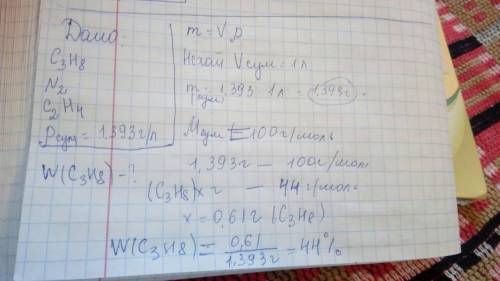 Дано:
C3H8
N2
C2H4
ρсум = 1,393 г/л
W(C3H8) - ?
m = V·ρ
Нехай Vсум = 1 л
mсум = 1,393 · 1 л = 1,393 г
Mсум = 100 г/моль
1,393 г — 100 г/моль
(C3H8) x г — 44 г/моль
x = 0,61 г (C3H8)
W(C3H8) = 0,61 / 1,393 г = 44%